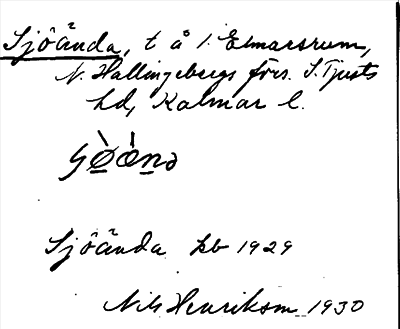 Sjöända, t å l. Elmarsrum,
N. Hallingebergs förs. S. Tjusts
hd, Kalmar l.
Sjöända kb 1929
Nils Henrikson 1930